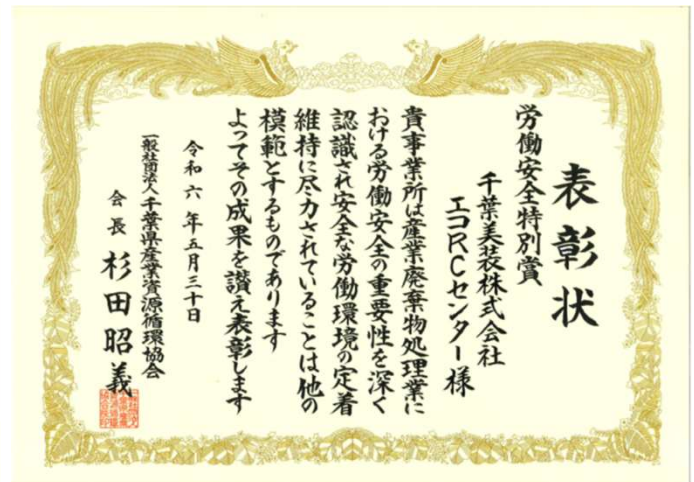 表彰状
労働安全特別賞
千葉美装株式会社
エコRCセンター様
貴事業所は産業廃棄物処理業に
おける労働安全の重要性を深く
認識され安全な労働環境の定着
維持に尽力されていることは他の
模範とするものであります
よってその成果を讃え表彰します
令和六年五月三十日
一般社団法人千葉県産業資源循環協会
会長 杉田昭義